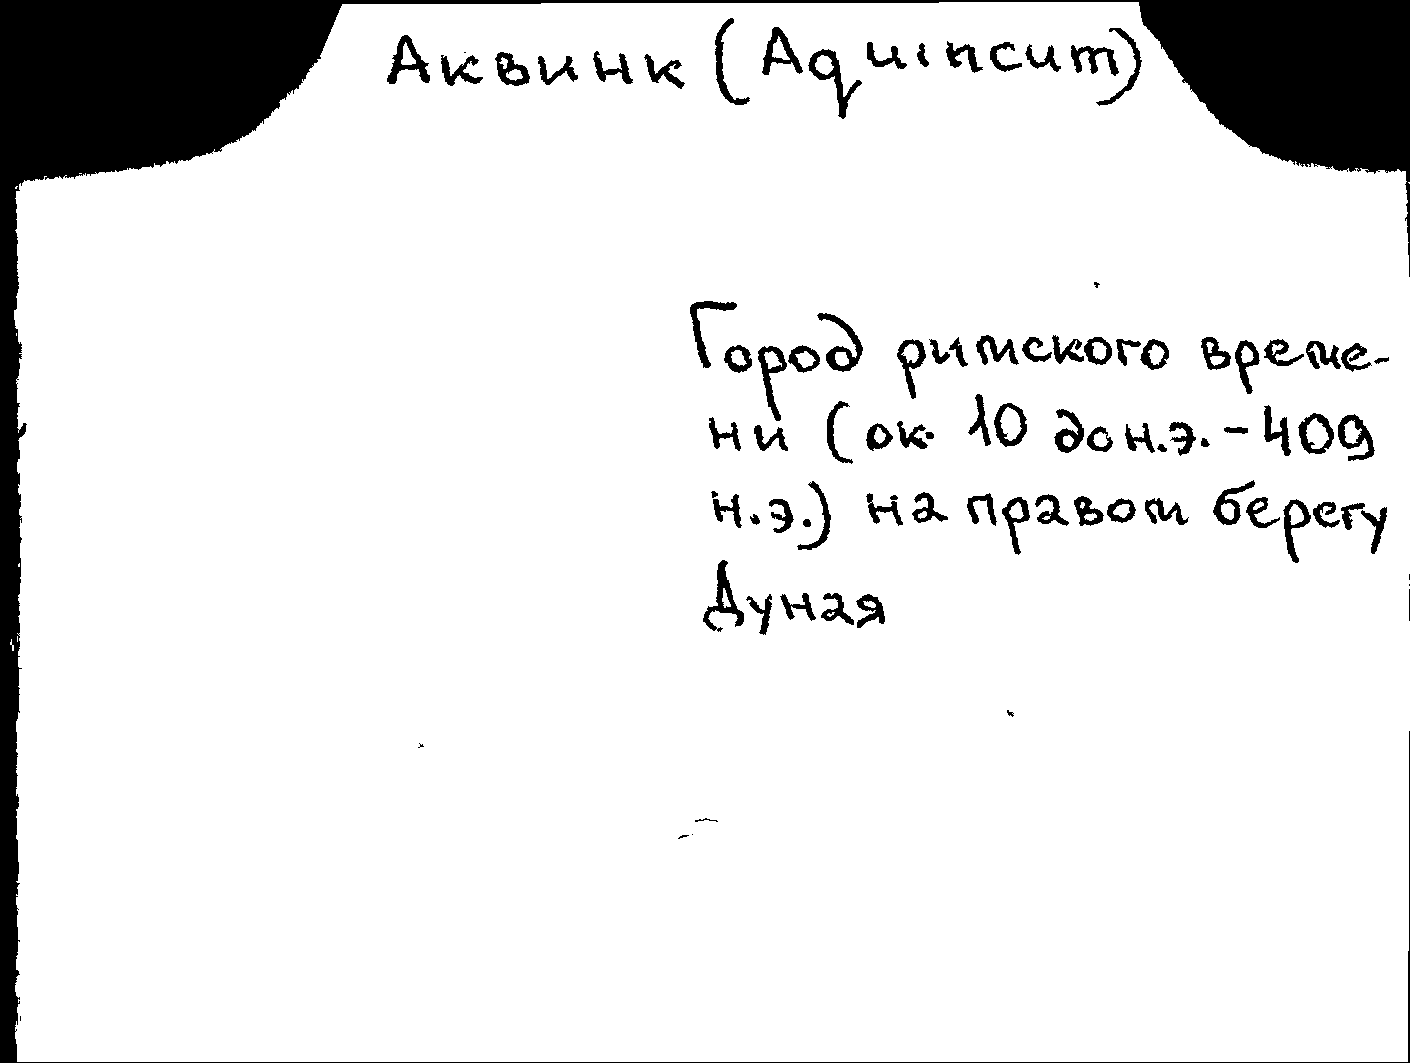 Аквинк (Aquincum)
Город римского време-
ни (ок. 10 до н.э. - 409
н.э.) на правом берегу
Дуная